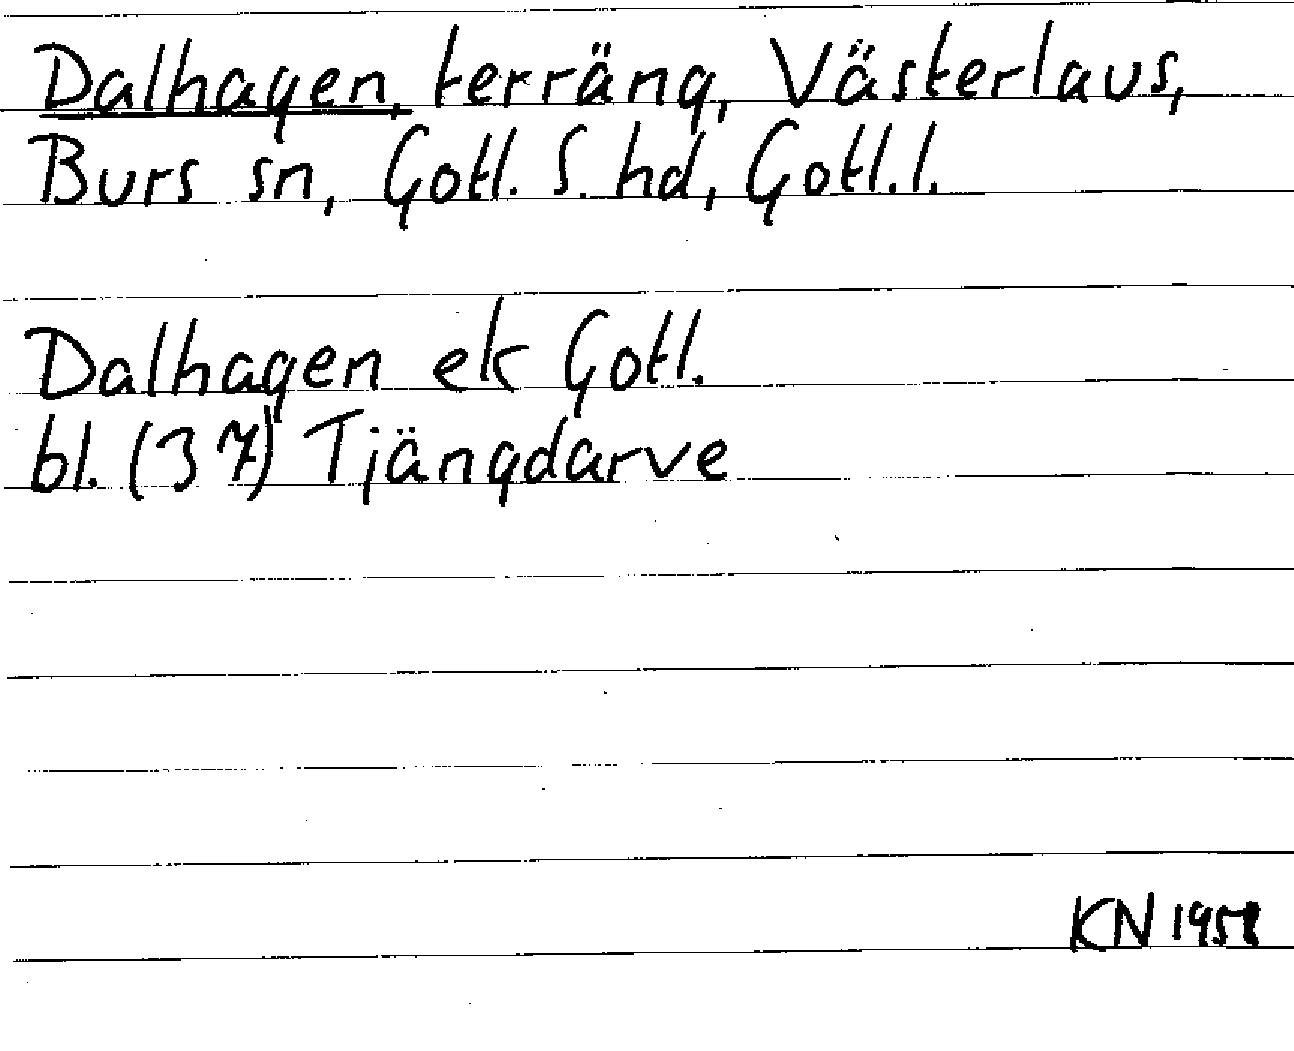 Dalhagen, terräng, Västerlaus,
Burs sn, Gotl. S. hd, Gotl. l.
Dalhagen ek Gotl.
bl. (37) Tjängdarve
KN 1958